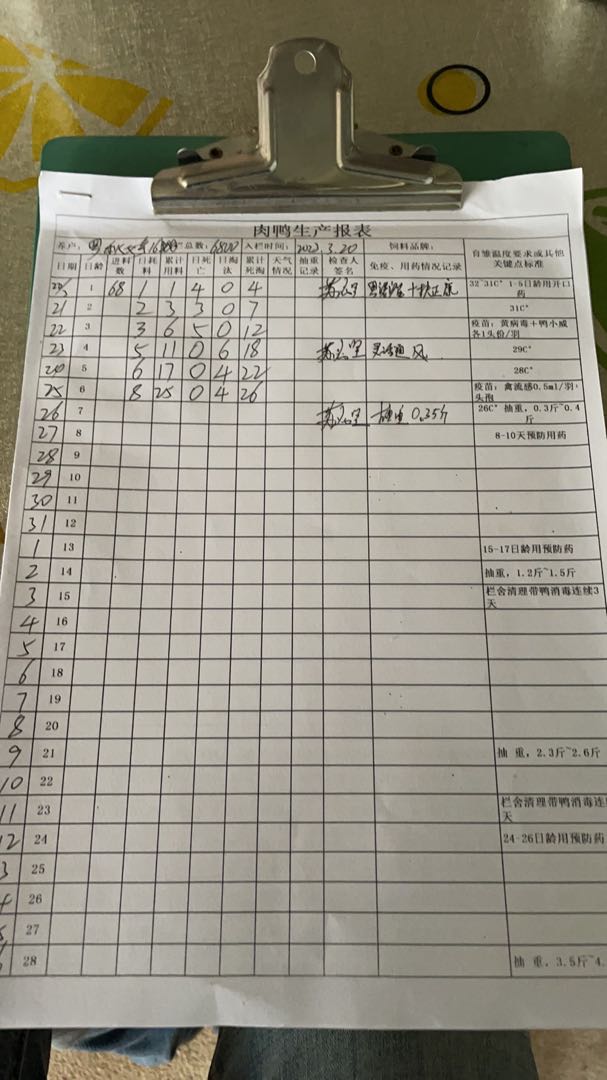 肉鸭生产报表
养户: 总数: 6800 入栏时间: 2022.3.20 饲料品牌:
日期 日龄 进料数 日耗料 累计用料 日死亡 日淘汰 累计死淘 天气情况 抽重记录 检查人签名 免疫、用药情况记录 育雏温度要求或其他关键点标准
1 68 1 1 4 0 4 32~31C° 1-5日龄用开口药
21 2 2 3 3 0 7 31C°
22 3 3 6 5 0 12 疫苗:黄病毒+鸭小威各1头份/羽
23 4 5 11 0 6 18 通风 29C°
5 6 17 0 4 22 28C°
25 6 8 25 0 4 26 疫苗:禽流感0.5ml/羽+头孢
26 7 0.35斤 26C° 抽重,0.3斤~0.4斤
27 8 8-10天预防用药
28 9
29 10
30 11
31 12
1 13 15-17日龄用预防药
2 14 抽重,1.2斤~1.5斤
3 15 栏舍清理带鸭消毒连续3天
4 16
5 17
6 18
7 19
8 20
9 21 抽重,2.3斤~2.6斤
10 22
11 23 栏舍清理带鸭消毒连续天
12 24 24-26日龄用预防药
3 25
4 26
27
28 抽重,3.5斤~4.